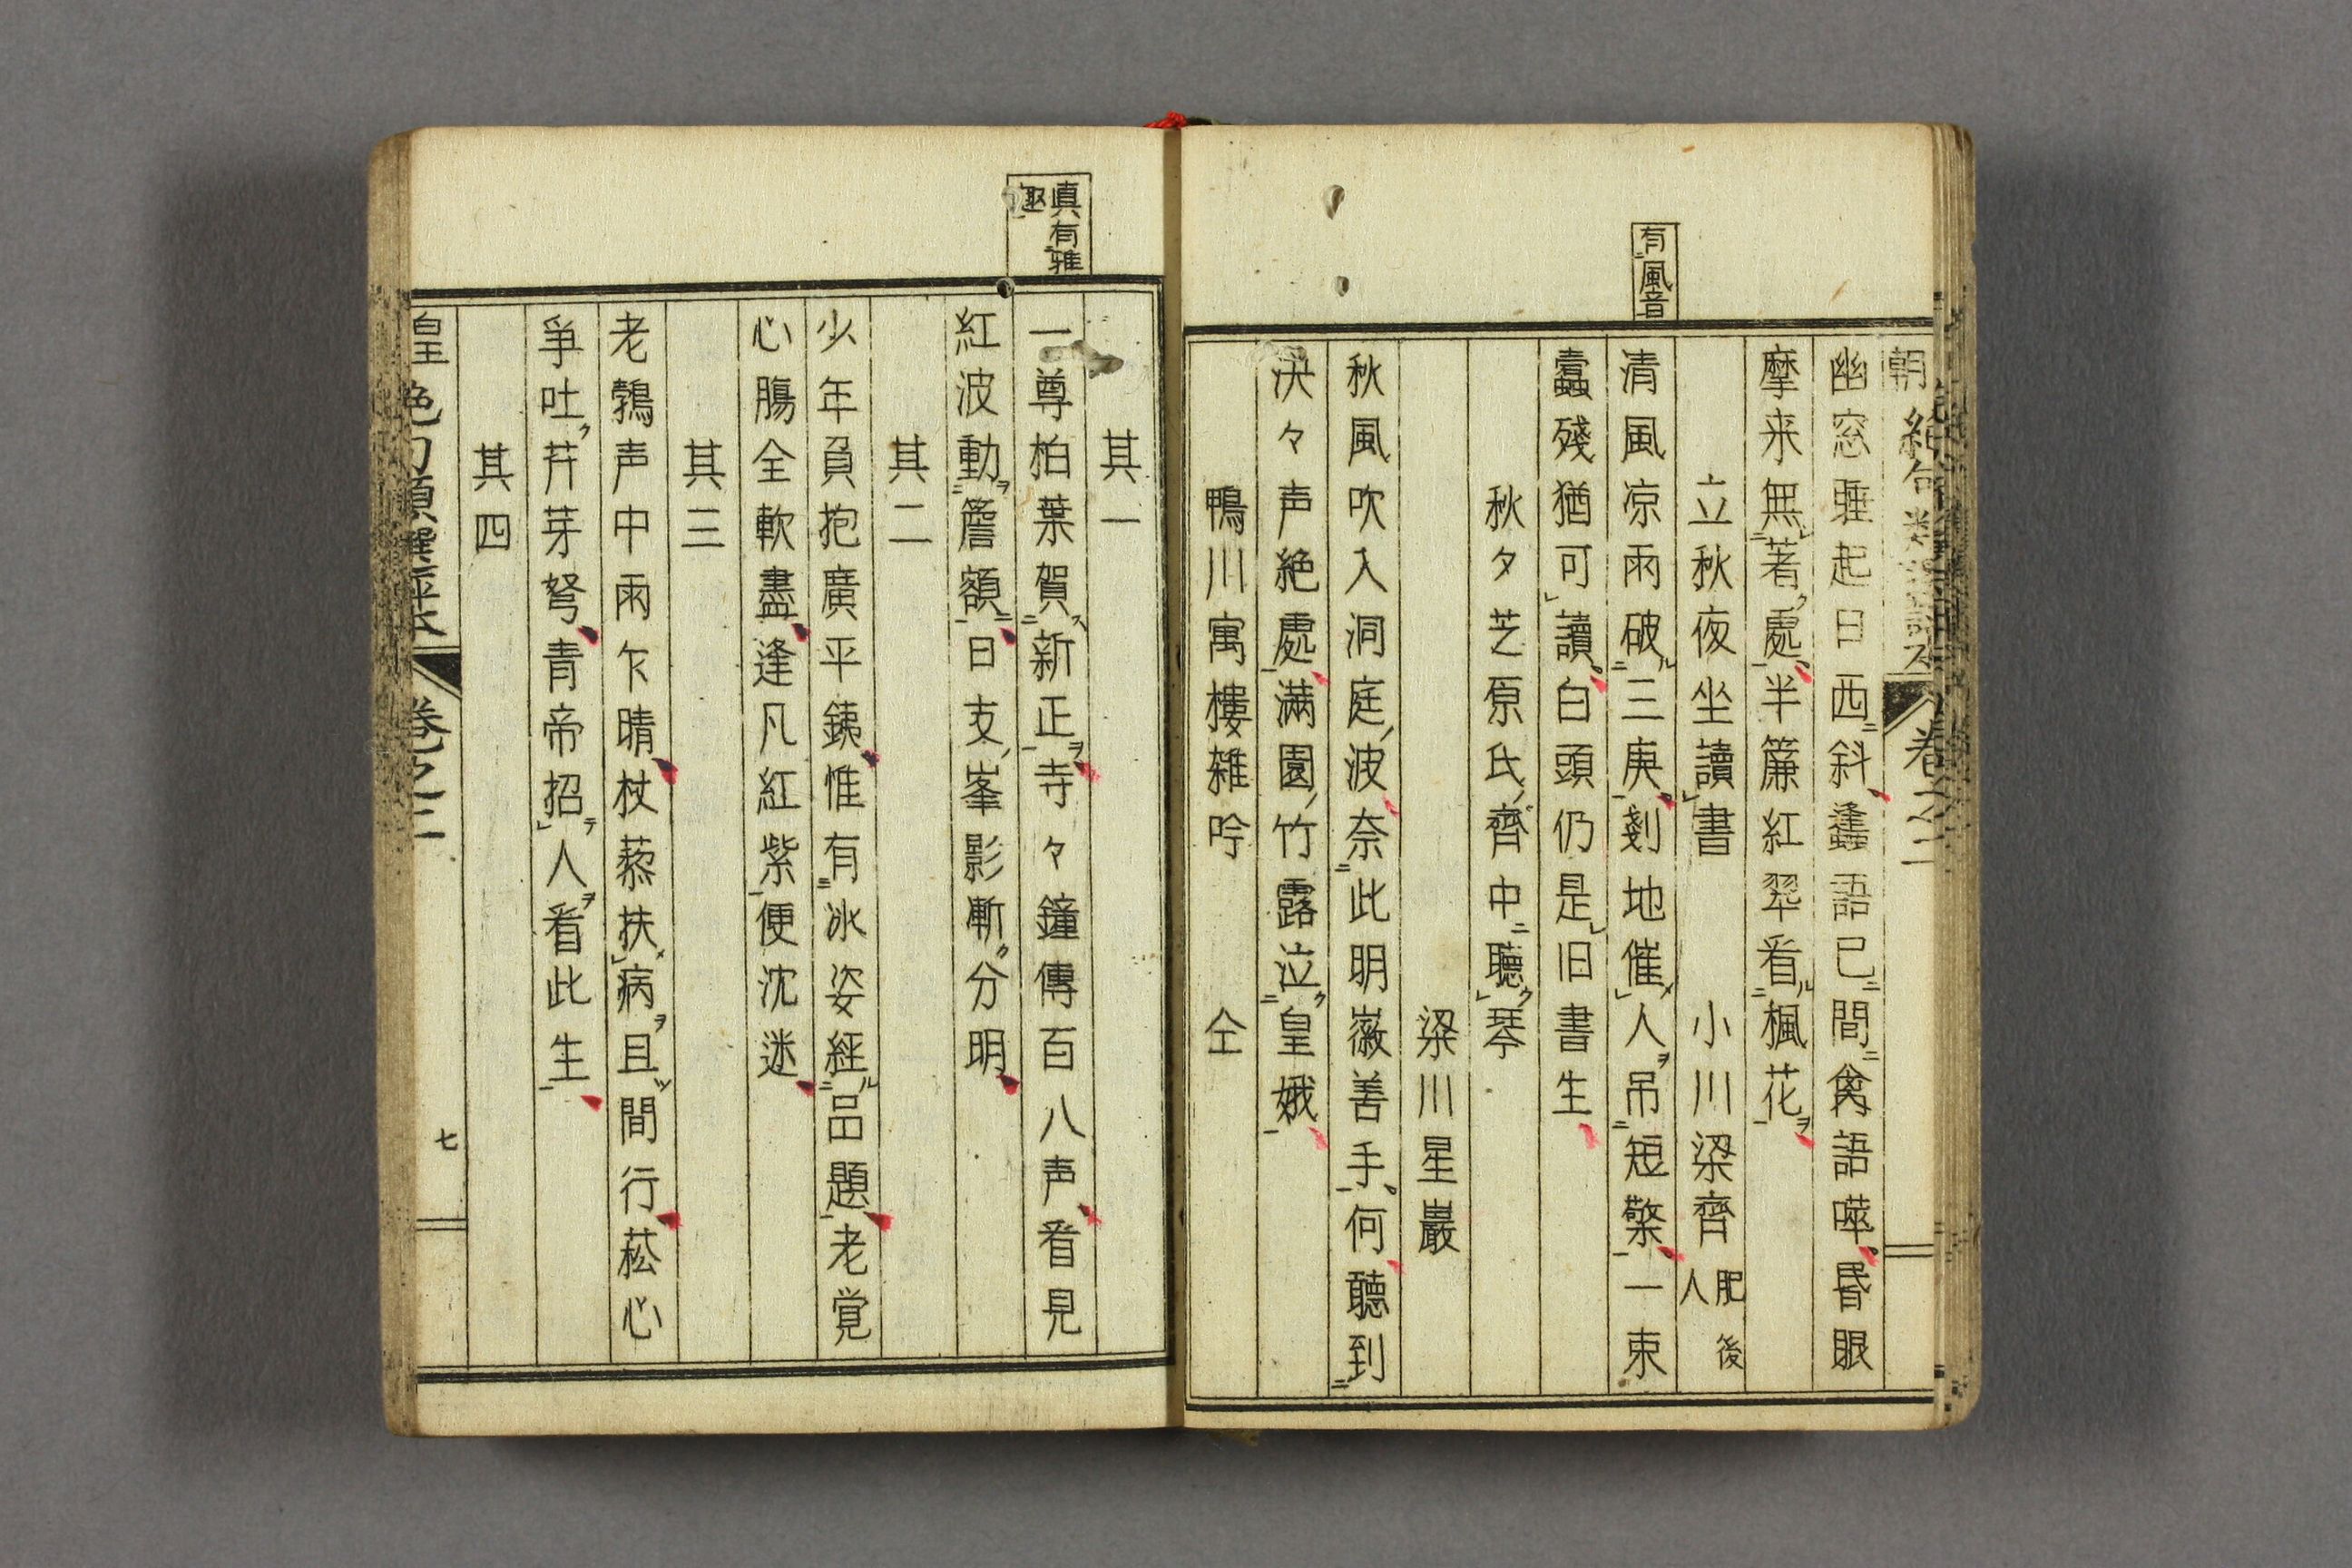 有風音
幽窓睡起日西斜蘧語已間禽語嘩昏眼
摩来無著處半簾紅翠看楓花
立秋夜坐讀書 小川梁齊 肥後人
清風凉雨破三庚剗地催人吊短檠一束
蠧殘猶可讀白頭仍是旧書生
秋夕芝原氏齊中聽琴
梁川星巖
秋風吹入洞庭波奈此明嶶善手何聽到
泱々声絶處滿園竹露泣皇娥
鴨川寓樓雜吟 仝
真有雅趣
其一
一尊柏葉賀新正寺々鐘傳百八声看見
紅波動簷額日支峯影漸分明
其二
少年負抱廣平銕惟有氷姿經品題老覚
心腸全軟盡逢凡紅紫便沈迷
其三
老鶉声中雨乍晴杖藜扶病且間行菘心
爭吐芹芽弩青帝招人看此生
其四
皇 絶句類選評本 卷之二 七